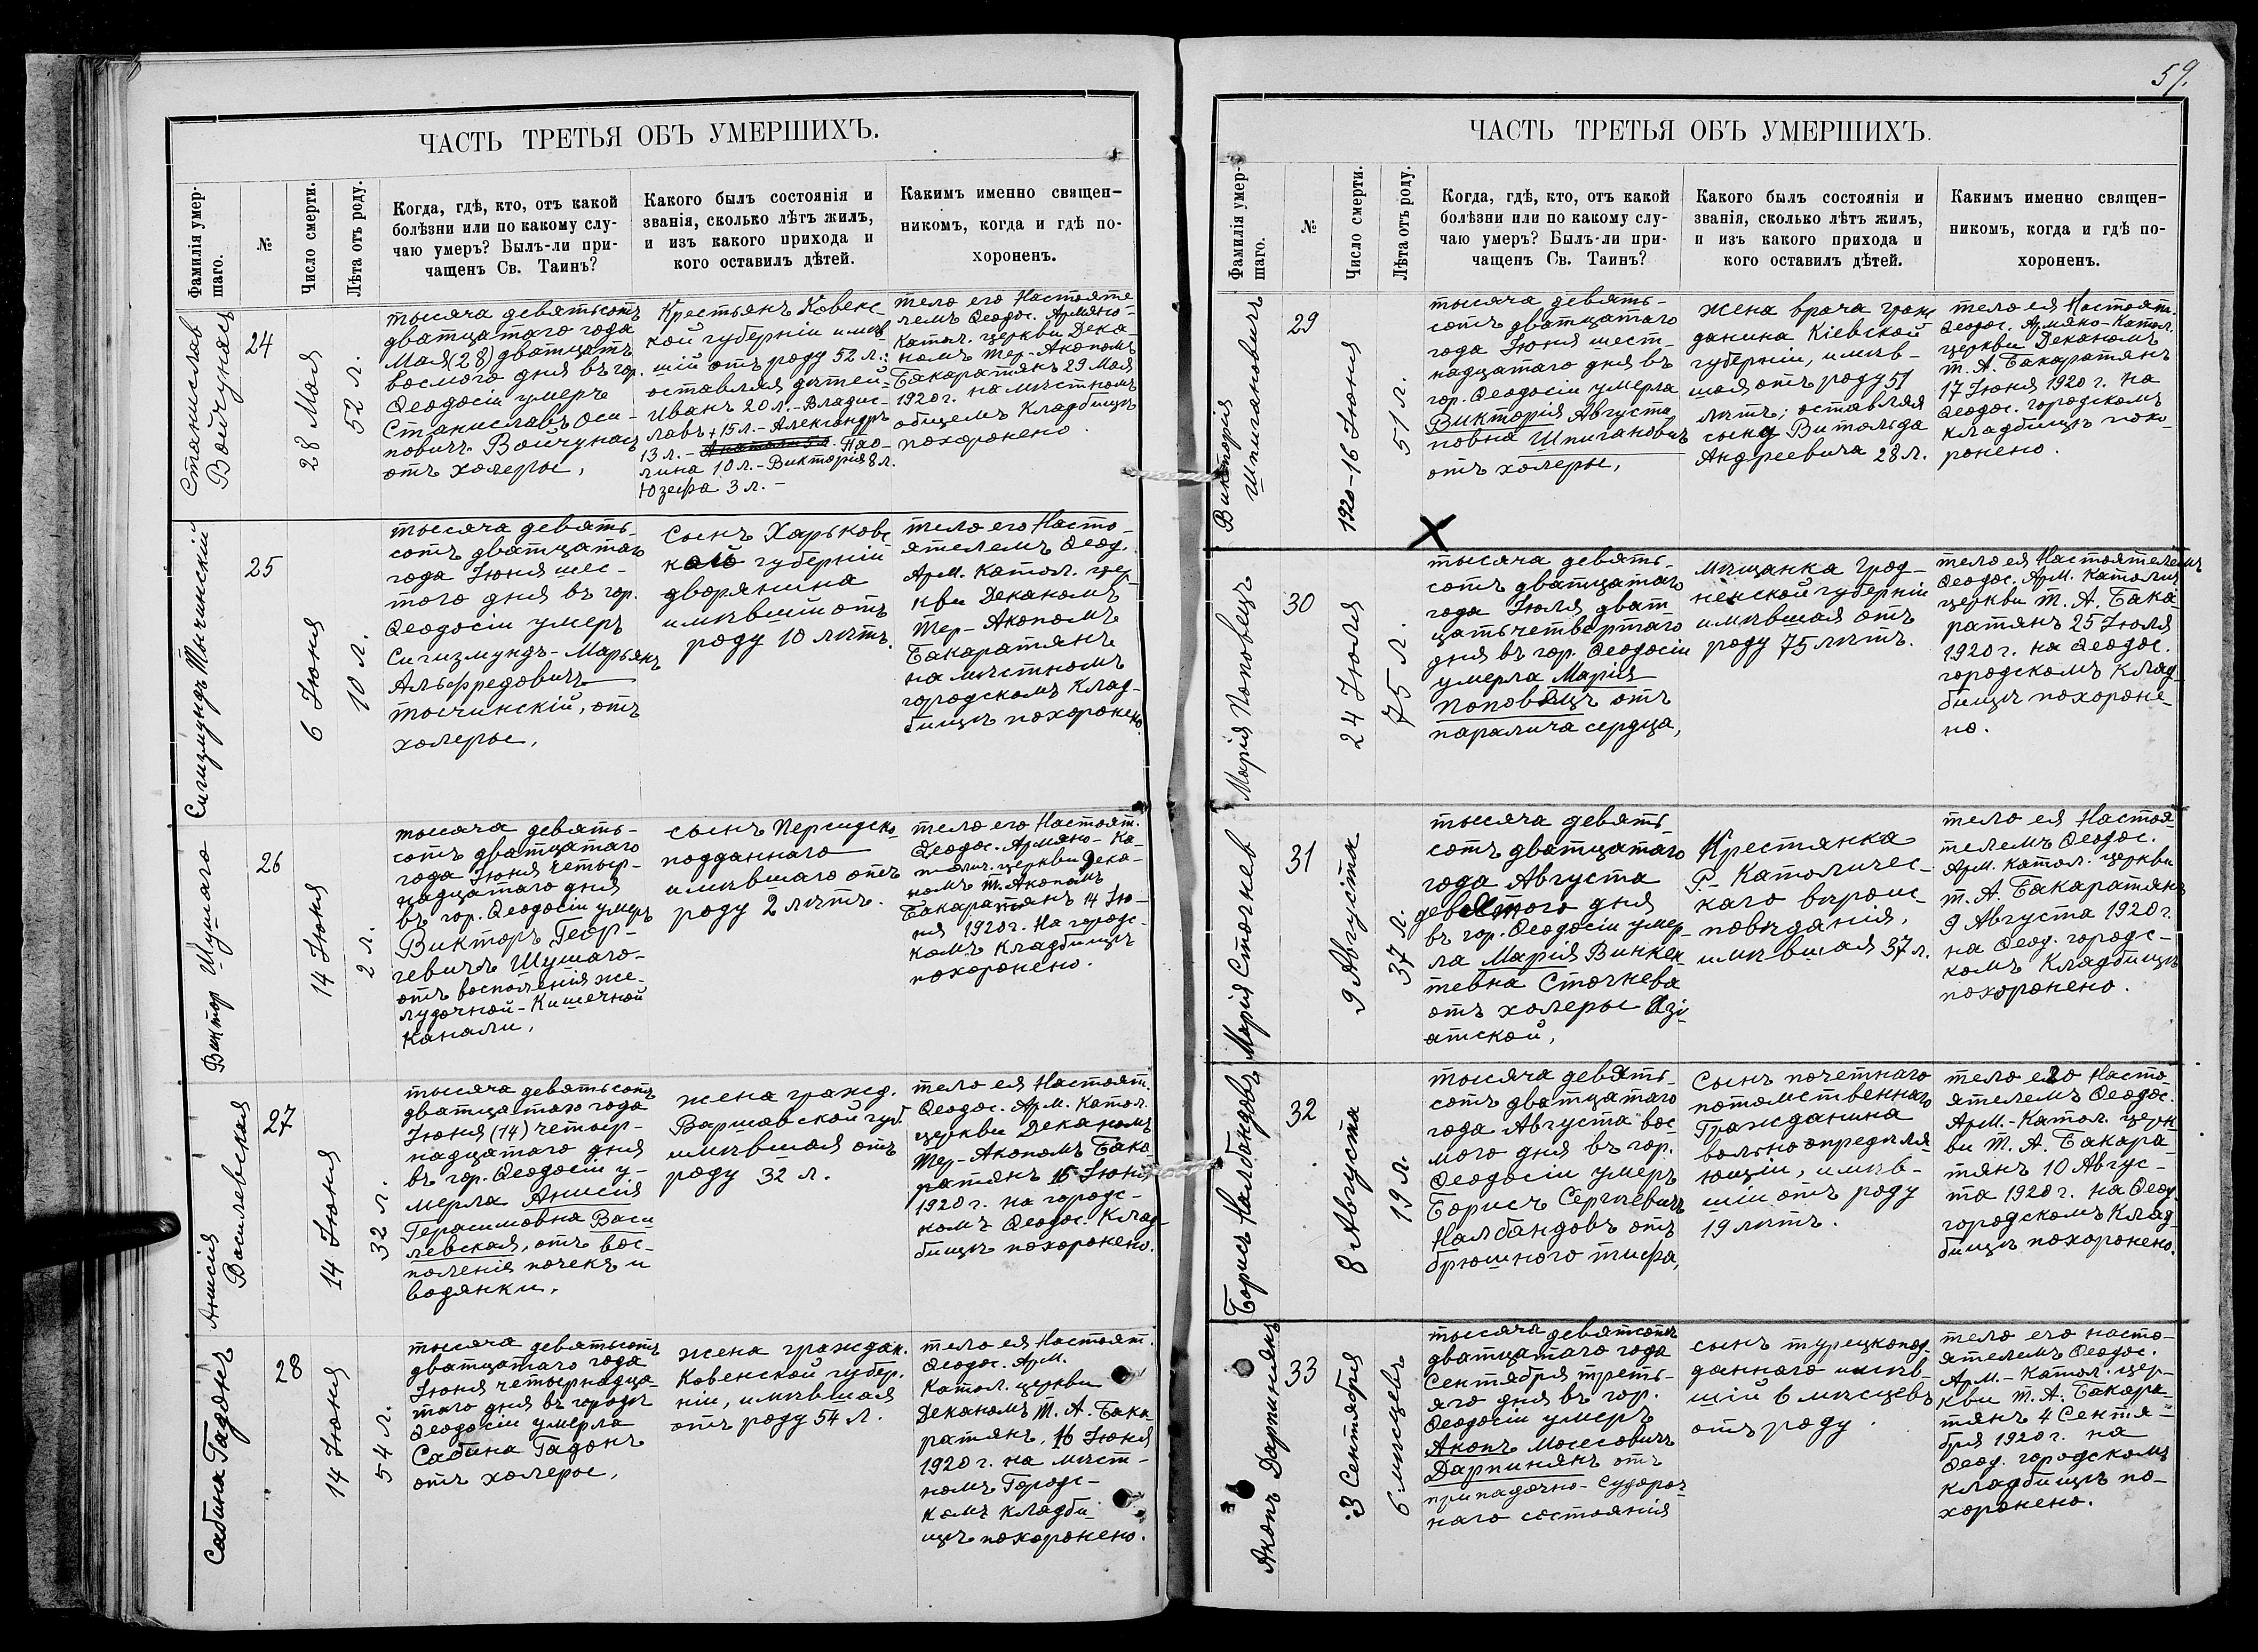 59.
ЧАСТЬ ТРЕТЬЯ ОБЪ УМЕРШИХЪ.
Фамилія умер-
шаго.
№
Число смерти.
Лѣта отъ роду.
Когда, гдѣ, кто, отъ какой
болѣзни или по какому слу-
чаю умеръ? Былъ-ли при-
чащенъ Св. Таинъ?
Какого былъ состоянія и
званія, сколько лѣтъ жилъ,
и изъ какого прихода и
кого оставилъ дѣтей.
Какимъ именно священ-
никомъ, когда и гдѣ по-
хороненъ.
Станислав
Войчунас
24
28 Мая
52 л.
тысяча девятьсотъ
дватцатаго года
Мая (28) дватцать
восмого дня въ гор.
Ѳеодосіи умеръ
Станиславъ Оси-
повичъ Войчунас
отъ холеры,
Крестьянъ Ковенс
кой губерніи имѣв
шій отъ роду 52 л.:
оставляя дѣтей=
Иванъ 20 л.-Владис-
лавъ 15 л.-Александръ
13 л.- Пао-
лина 10 л.-Викторія 8 л.
Юзефа 3 л. -
тело его Настояте
лемъ Ѳеодос. Армяно-
Катол. церкви Дека-
номъ Тер-Акопомъ
Бакаратянъ 29 Мая
1920 г. на мѣстномъ
общемъ Кладбищѣ
похоронено.
Сигизмундъ Тычинскій
25
6 Іюня
10 л.
тысяча девять-
сотъ дватцатаго
года Іюня шес-
того дня въ гор.
Ѳеодосіи умеръ
Сигизмундъ-Марьянъ
Альфредовичъ
тычинскій, отъ
холеры,
Сынъ Харьковс
кой губерніи
дворянина
имѣвшій отъ
роду 10 лѣтъ.
тело его Насто-
ятелемъ Ѳеод.
Арм. Катол. цер
кви Деканомъ
Тер-Акопомъ
Бакаратянъ
на мѣстномъ
городскомъ Клад-
бищѣ похоронено.
Виктор Шушаго
26
14 Іюня
2 л.
тысяча девять-
сотъ дватцатаго
года Іюня четыр-
надцатаго дня
въ гор. Ѳеодосіи умеръ
Викторъ Геор-
гевичъ Шушаго-
отъ восполенія же-
лудочной-Кишечной
Канали,
сынъ Персидско
подданнаго
имѣвшаго отъ
роду 2 лѣтъ.
тело его Настоят.
Ѳеодос. Армяно-Ка-
толич. церкви Дека-
номъ Т. Акопомъ
Бакаратянъ 14 Ію-
ня 1920 г. На городс-
комъ Кладбищѣ
похоронено.
Анисія
Василевская
27
14 Іюня
32 л.
тысяча девятьсотъ
дватцатаго года
Іюня (14) четыр-
надцатаго дня
въ гор. Ѳеодосіи у-
мерла Анисія
Герасимовна Васи
левская, отъ вос-
поленія почекъ и
водянки,
жена гражд.
Варшавской губ.
имѣвшая отъ
роду 32 л.
тело ея Настоят.
Ѳеодос. Арм. Катол.
церкви Деканомъ
Тер-Акопомъ Бака-
ратянъ 16 Іюня
1920 г. на городс-
комъ Ѳеодос. Клад-
бищѣ похоронено.
Сабина Гадонъ
28
14 Іюня
54 л.
тысяча девятьсотъ
дватцатаго года
Іюня четырнадца-
таго дня въ городѣ
Ѳеодосіи умерла
Сабина Гадонъ
отъ холеры,
жена граждан.
Ковенской губер.
ніи, имѣвшая
отъ роду 54 л.
тело ея Настоят.
Ѳеодос. Арм.
Катол. церкви
Деканомъ Т. А. Бака
ратянъ, 16 Іюня
1920 г. на мѣст-
номъ Городс-
комъ кладби-
щѣ похоронено.
ЧАСТЬ ТРЕТЬЯ ОБЪ УМЕРШИХЪ.
Фамилія умер-
шаго.
№
Число смерти.
Лѣта отъ роду.
Когда, гдѣ, кто, отъ какой
болѣзни или по какому слу-
чаю умеръ? Былъ-ли при-
чащенъ Св. Таинъ?
Какого былъ состоянія и
званія, сколько лѣтъ жилъ,
и изъ какого прихода и
кого оставилъ дѣтей.
Какимъ именно священ-
никомъ, когда и гдѣ по-
хороненъ.
Викторія
Шпигановичъ
29
1920-16 Іюня
51 л.
тысяча девять-
сотъ дватцатаго
года Іюня шест-
надцатаго дня въ
гор. Ѳеодосіи умерла
Викторія Августи
новна Шпигановичъ
отъ холеры,
жена врача граж
данина Кіевской
губерніи, имѣв-
шая отъ роду 51
лѣтъ; оставляя
сына Витольда
Андреевича 28 л.
тело ея Настоят.
Ѳеодос. Армяно-Катол.
церкви Деканомъ
Т. А. Бакаратянъ
17 Іюня 1920 г. На
Ѳеодос. городскомъ
кладбищѣ похо-
ронено.
Марія Поповецъ
30
24 Іюля
75 л.
тысяча девять-
сотъ дватцатаго
года Іюля дват
цать четвертаго
дня въ гор. Ѳеодосіи
умерла Марія
Поповецъ отъ
паралича сердца,
мѣщанка Грод-
ненской губерніи
имѣвшая отъ
роду 75 лѣтъ.
тело ея Настоятелемъ
Ѳеодос. Арм. Католич
церкви Т. А. Бака-
ратянъ 25 Іюля
1920 г. на Ѳеодос.
городскомъ Клад
бищѣ похороне-
но.
Марія Сточнев
31
9 Августа
37 л.
тысяча девять-
сотъ дватцатаго
года Августа
девятого дня
въ гор. Ѳеодосіи умер-
ла Марія Викен
тевна Сточнева
отъ холеры Азі-
атской,
Крестянка
Р.-Католичес-
каго вѣроис-
поведанія,
имѣвшая 37 л.
тело ея Настоя-
телемъ Ѳеодос.
Арм. Катол. церкви
Т. А. Бакаратянъ
9 Августа 1920 г.
на Ѳеод. городс-
комъ Кладбищѣ
похоронено.
Борисъ Налбандовъ
32
8 Августа
19 л.
тысяча девять-
сотъ двагцатаго
года Августа вос
мого дня въ гор.
Ѳеодосіи умеръ
Борисъ Сергѣевичъ
Налбандовъ отъ
брюшного тифа,
Сынъ почетнаго
потомственнаго
Гражданина
вольноопредѣля
ющіи, имѣв-
шіи отъ роду
19 лѣтъ.
тело его Насто-
ятелемъ Ѳеодос.
Арм.-Катол. церк
ви Т. А. Бакара-
тянъ 10 Авгус-
та 1920 г. на Ѳеод.
городскомъ Клад-
бищѣ похоронено.
Акопъ Дарпинянъ
33
3 Сентября
6 мѣсцевъ
тысяча девятсотъ
двагцатаго года
Сентября треть-
яго дня въ гор.
Ѳеодосіи умеръ
Акопъ Мосесовичъ
Дарпинянъ отъ
припадочно-Судорож
наго состоянія
сынъ турецкопод
даннаго имѣв-
шій 6 мѣсцевъ
отъ роду.
тело его насто-
ятелемъ Ѳеодос.
Арм.-Катол. цер-
кви Т. А. Бакара-
тянъ 4 Сентя-
бря 1920 г. на
Ѳеод. городскомъ
кладбищѣ по-
хоронено.